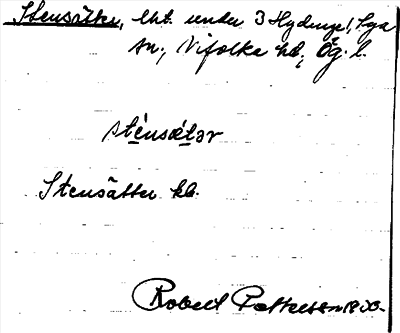 Stensätter, lht. under 3 Hydinge, Sya
sn., Vifolka hd., Ög. l.
sténsætər
Stensätter kb.
Robert Pettersson